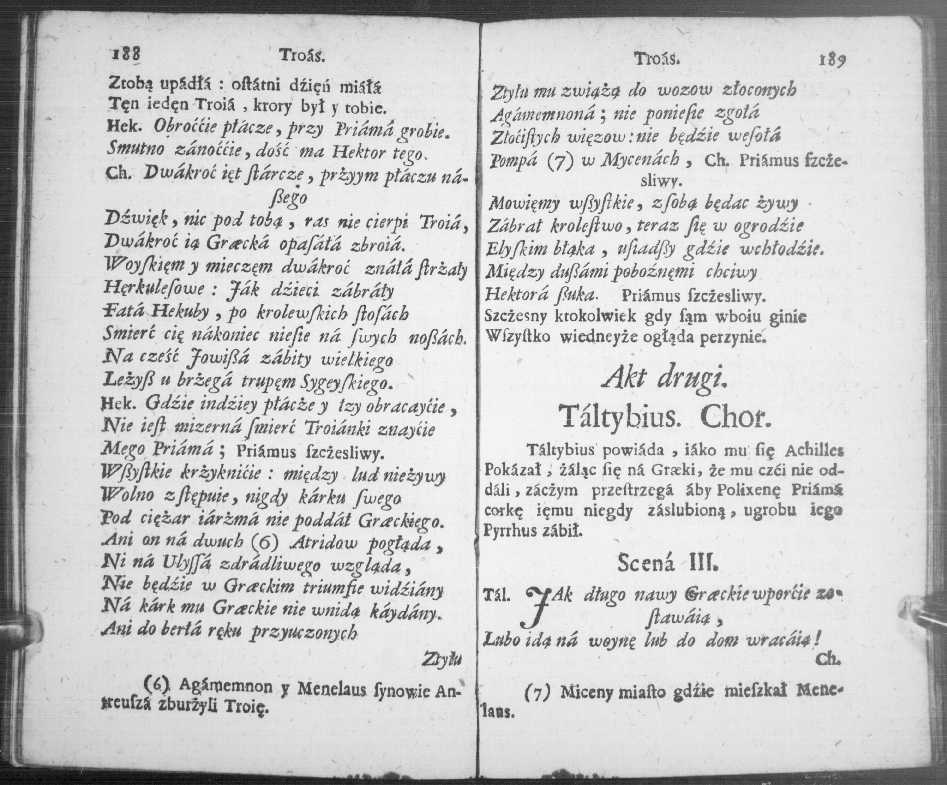 188 Troás.
Ztobą upádłá : ostátni dźięń miáłá
Tęn iedęn Troiá , ktory był y tobie.
Hek. Obroććie płácze, przy Priámá grobie.
Smutno zánoććie, dość ma Hektor tego.
Ch. Dwákroć ięt stárcze, prżyym płáczu ná-
ßego
Dźwięk, nic pod tobą, ras nie cierpi Troiá,
Dwákroć ią Græcká opasáłá zbroiá.
Woyskięm y mieczęm dwákroć znáłá strżały
Hęrkulesowe : Ják dźieci zábráły
Fatá Hekuby , po krolewskich stosách
Smierć cię nákoniec niesie ná swych noßách.
Na cześć Jowißá zábity wielkiego
Leżyß u brżegá trupęm Sygeyskiego.
Hek. Gdźie indźiey płácże y łzy obracayćie ,
Nie iest mizerná smierć Troiánki znayćie
Mego Priámá ; Priámus szcżesliwy.
Wßystkie krżyknićie : między lud nieżywy
Wolno zstępuie, nigdy kárku swego
Pod ciężar iárżmá nie poddáł Græckiego.
Ani on ná dwuch (6) Atridow pogłąda ,
Ni ná Ulyssá zdrádliwego wzgląda ,
Nie będźie w Græckim triumfie widźiány
Ná kárk mu Græckie nie wnidą káydány.
Ani do berłá ręku przyuczonych
Ztyłu
(6) Agámemnon y Menelaus synowie An-
treuszá zburżyli Troię.
Troás. 189
Ztyłu mu zwiążą do wozow złoconych
Agámemnoná ; nie poniesie zgołá
Złoćistych więzow : nie będźie wesołá
Pompá (7) w Mycenách , Ch. Priámus szcże-
sliwy.
Mowięmy wßystkie, zsobą będac żywy
Zábrał krolestwo, teraz się w ogrodźie
Elyskim błąka , usiadßy gdźie wchłodźie.
Między dußámi poboźnęmi chciwy
Hektorá ßuka. Priámus szcżesliwy.
Szcżesny ktokolwiek gdy sąm wboiu ginie
Wszystko wiedneyże ogłąda perzynie.
Akt drugi.
Táltybius. Chor.
Táltybius powiáda , iáko mu się Achilles
Pokázał , żáląc się ná Græki, że mu czći nie od-
dáli , záczym przestrzegá áby Polixenę Priámá
corkę ięmu niegdy záslubioną , ugrobu iego
Pyrrhus zábił.
Scená III.
Tál. JAk długo nawy Græckie wporćie zo-
stawáią ,
Lubo idą ná woynę lub do dom wracáią !
Ch.
(7) Miceny miasto gdźie mieszkał Mene-
laus.